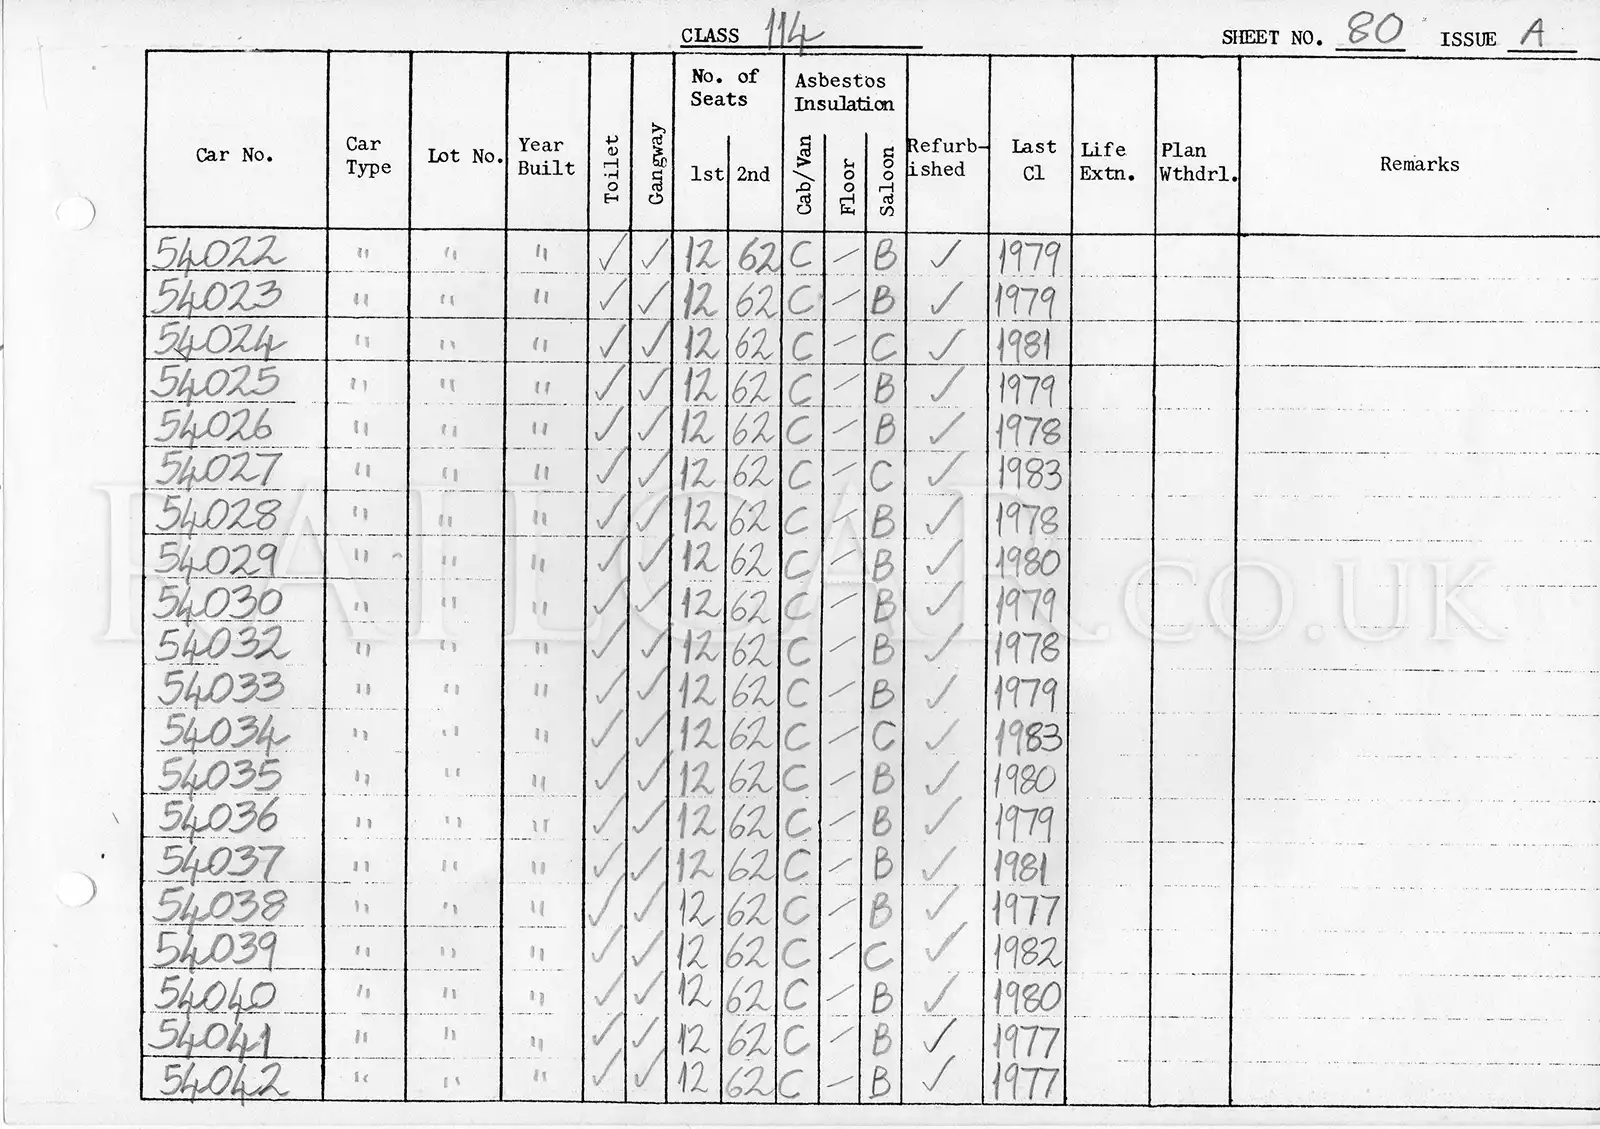 CLASS 114 SHEET NO. 80 ISSUE A
Car No. Car Type Lot No. Year Built Toilet Gangway No. of Seats 1st 2nd Asbestos Insulation Cab/Van Floor Saloon Refurb-ished Last Cl Life Extn. Plan Wthdrl. Remarks
54022 " " " ✓ ✓ 12 62 C — B ✓ 1979
54023 " " " ✓ ✓ 12 62 C — B ✓ 1979
54024 " " " ✓ ✓ 12 62 C — C ✓ 1981
54025 " " " ✓ ✓ 12 62 C — B ✓ 1979
54026 " " " ✓ ✓ 12 62 C — B ✓ 1978
54027 " " " ✓ ✓ 12 62 C — C ✓ 1983
54028 " " " ✓ ✓ 12 62 C — B ✓ 1978
54029 " " " ✓ ✓ 12 62 C — B ✓ 1980
RAILCAR.CO.UK
54030 " " " ✓ ✓ 12 62 C — B ✓ 1979
54032 " " " ✓ ✓ 12 62 C — B ✓ 1978
54033 " " " ✓ ✓ 12 62 C — B ✓ 1979
54034 " " " ✓ ✓ 12 62 C — C ✓ 1983
54035 " " " ✓ ✓ 12 62 C — B ✓ 1980
54036 " " " ✓ ✓ 12 62 C — B ✓ 1979
54037 " " " ✓ ✓ 12 62 C — B ✓ 1981
54038 " " " ✓ ✓ 12 62 C — B ✓ 1977
54039 " " " ✓ ✓ 12 62 C — C ✓ 1982
54040 " " " ✓ ✓ 12 62 C — B ✓ 1980
54041 " " " ✓ ✓ 12 62 C — B ✓ 1977
54042 " " " ✓ ✓ 12 62 C — B ✓ 1977